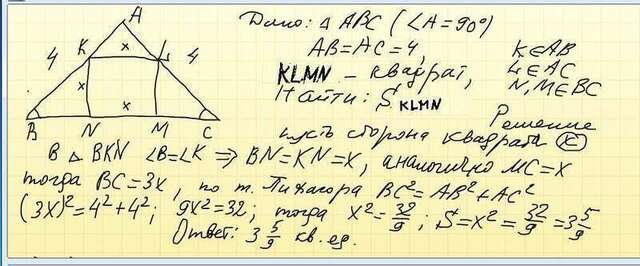 A
K x L
4 4
x
x
B N M C
Дано: △ ABC (∠A=90°)
AB=AC=4, K∈AB
KLMN – квадрат, L∈AC
Найти: S KLMN N,M∈BC
Решение
пусть сторона квадрата x
В △ BKN ∠B=∠K ⇒ BN=KN=x, аналогично MC=x
тогда BC=3x, по т. Пифагора BC²=AB²+AC²
(3x)²=4²+4²; 9x²=32; тогда x²=32/9; S=x²=32/9=3 5/9
Ответ: 3 5/9 кв. ед.